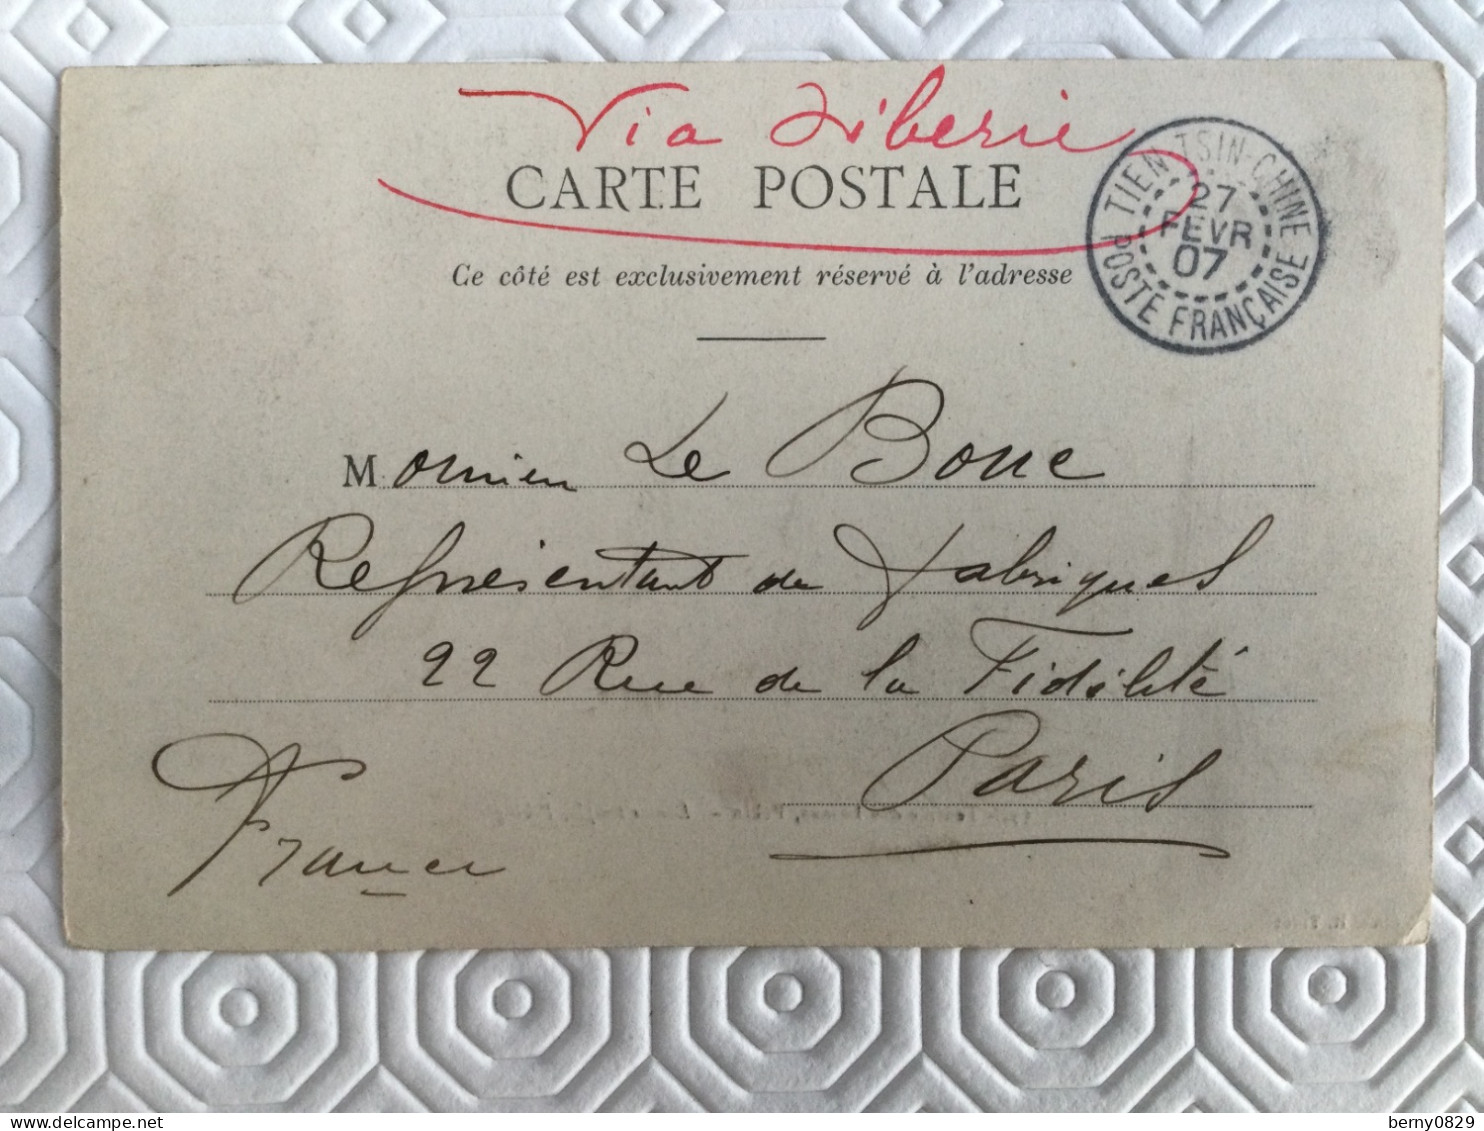 Via Siberie
CARTE POSTALE
TIEN-TSIN-CHINE
27
FEVR
07
POSTE FRANÇAISE
Ce côté est exclusivement réservé à l'adresse
Monsieur Le Bouc
Représentant de Fabriques
22 Rue de la Fidélité
Paris
France
delcampe.net
berny0829